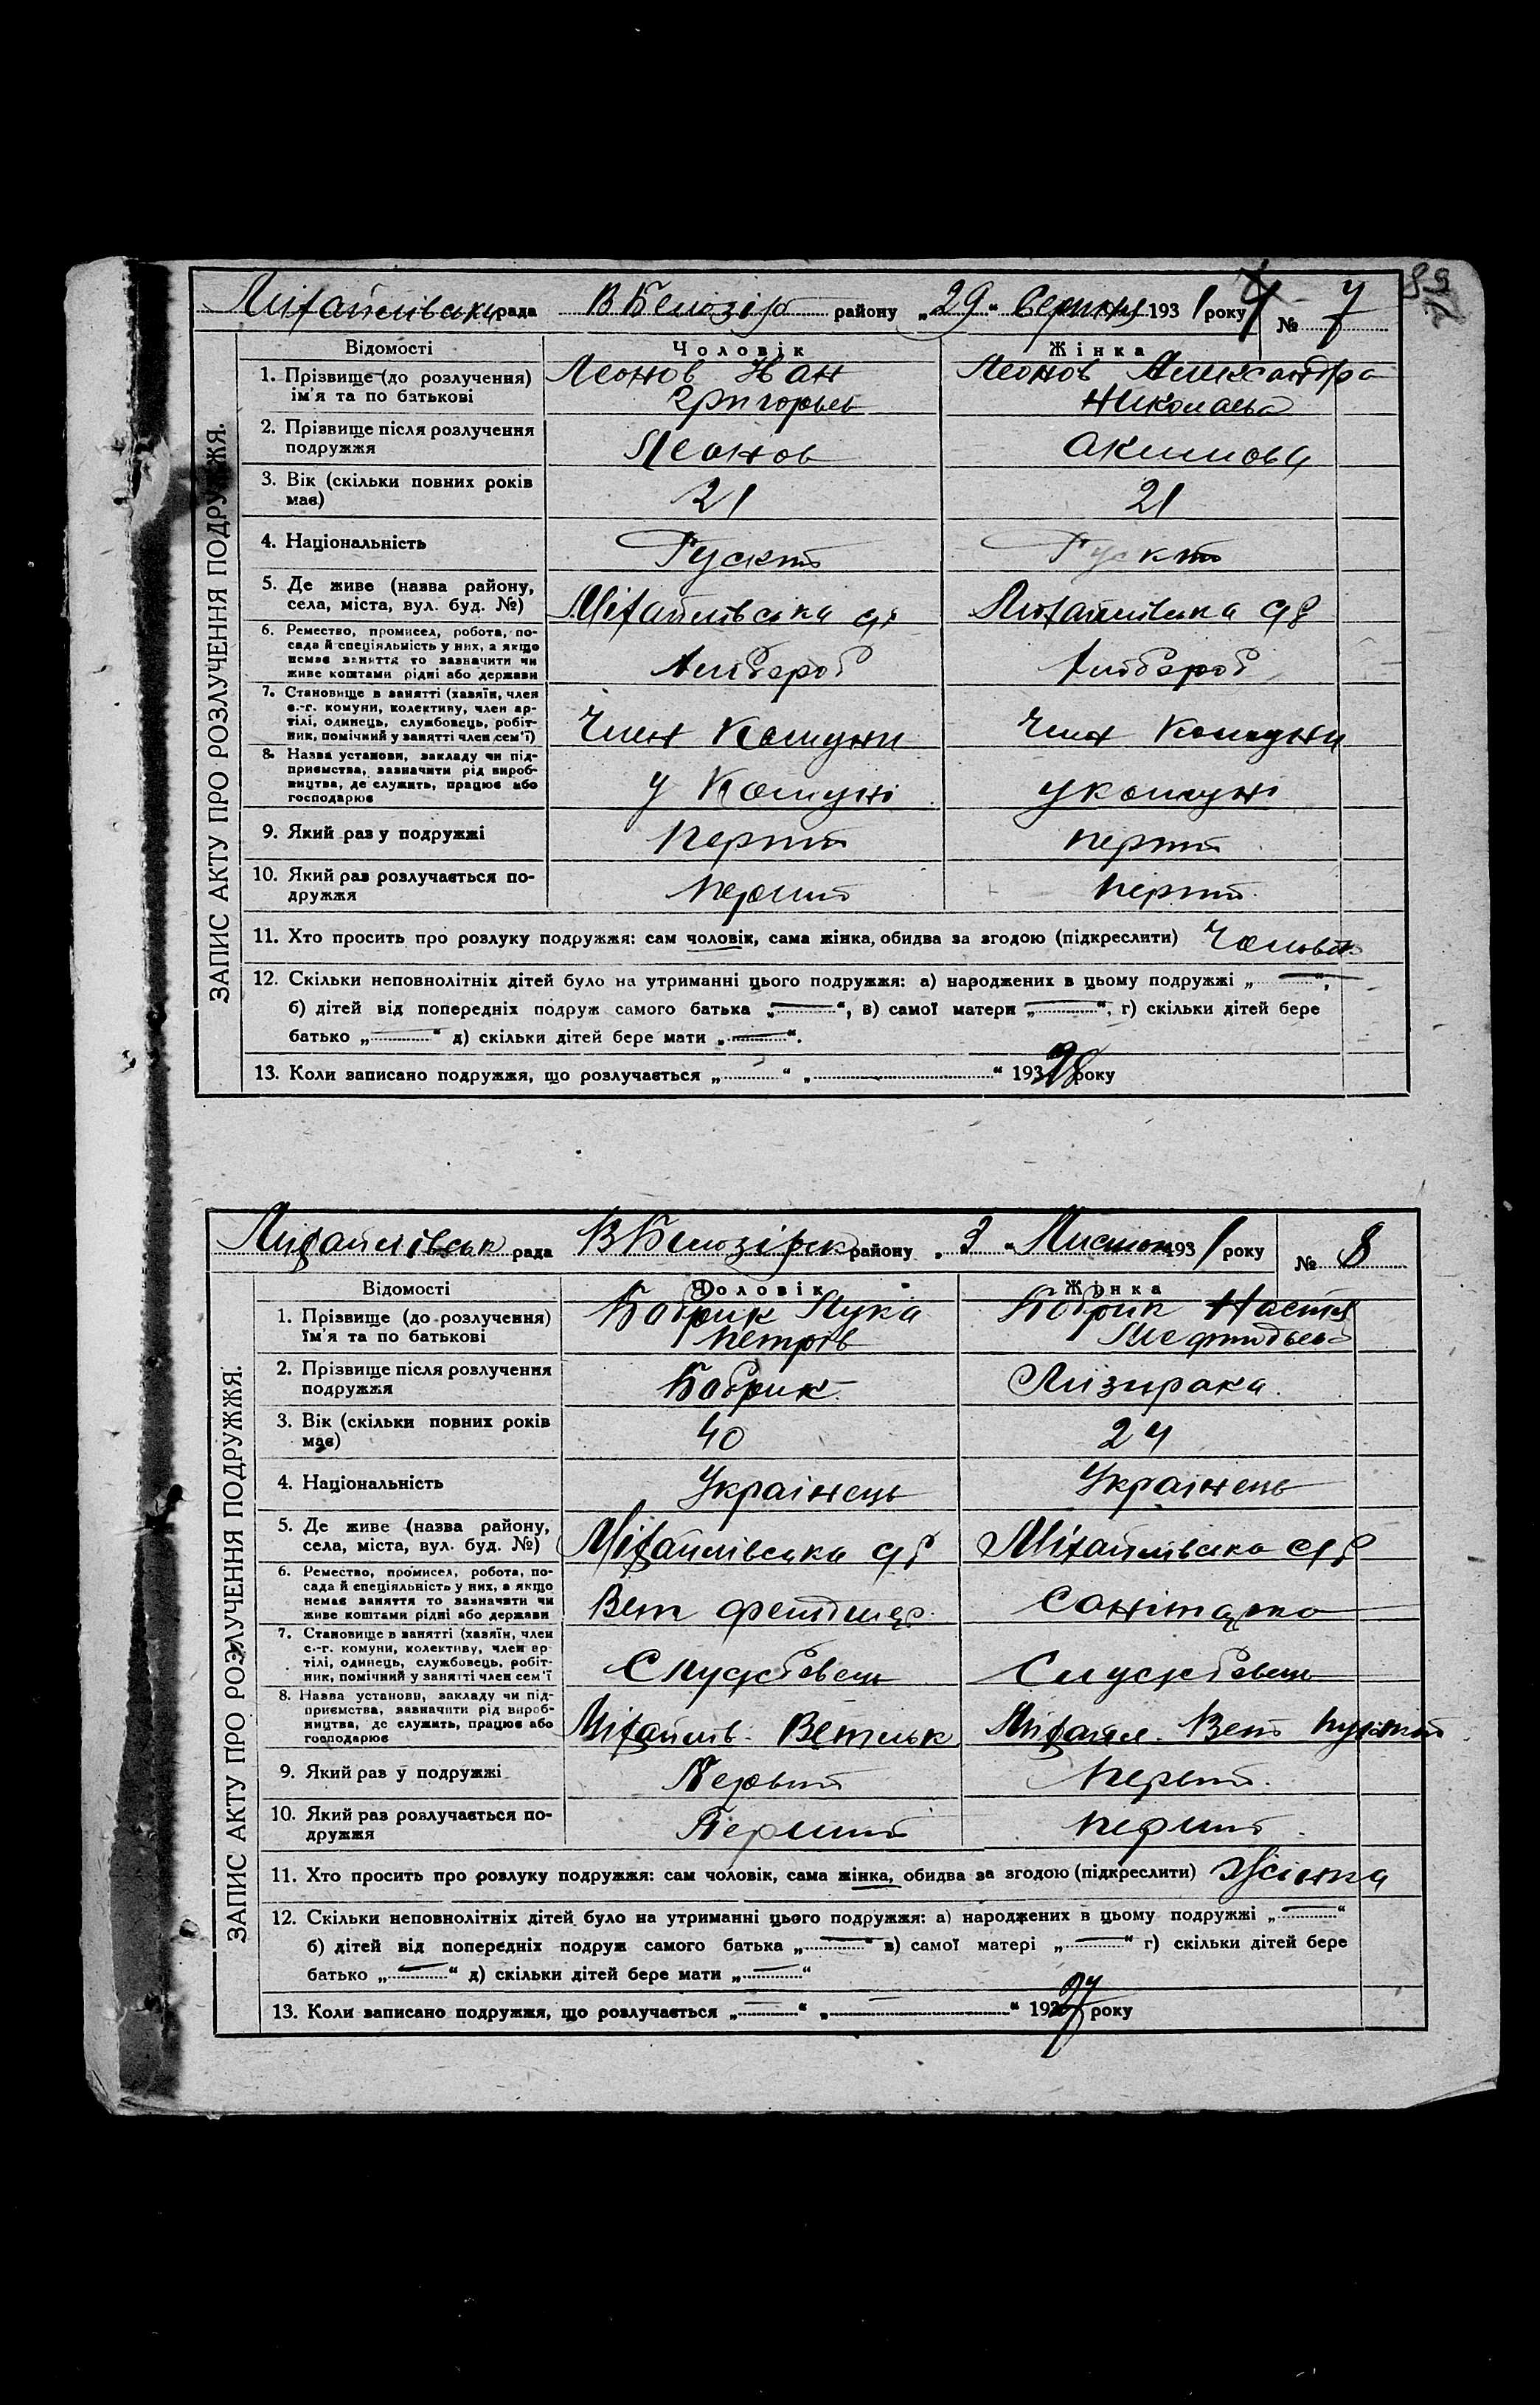 Міхайлівська рада В Белозір району „29“ Вересня 1931 року № 7
89
ЗАПИС АКТУ ПРО РОЗЛУЧЕННЯ ПОДРУЖЖЯ.
Відомості Чоловік Жінка
1. Прізвище (до розлучення) Леонов Іван Леонов Александра
ім'я та по батькові Григорьев Николаева
2. Прізвище після розлучення Леонов Акимова
подружжя
3. Вік (скільки повних років 21 21
має)
4. Національність Руский Руский
5. Де живе (назва району,
села, міста, вул. буд. №) Міхайлівська Міхайлівська
6. Ремество, промисел, робота, по-
сада й спеціяльність у них, а якщо
немає заняття то зазначити чи Хлібороб Хлібороб
живе коштами рідні або держави
7. Становище в занятті (хазяїн, член
с.-г. комуни, колективу, член ар-
тілі, одинець, службовець, робіт- Член Комуни Член Комуни
ник, помічний у занятті член сем'ї)
8. Назва установи, закладу чи під-
приємства, зазначити рід вироб-
ництва, де служить, працює або у Комуні у комуні
господарює
9. Який раз у подружжі Перший перший
10. Який раз розлучається по- Перший Перший
дружжя
11. Хто просить про розлуку подружжя: сам чоловік, сама жінка, обидва за згодою (підкреслити) Чоловік
12. Скільки неповнолітніх дітей було на утриманні цього подружжя: а) народжених в цьому подружжі „—“,
б) дітей від попередніх подруж самого батька „—“, в) самої матери „—“, г) скільки дітей бере
батько „—“ д) скільки дітей бере мати „—“.
13. Коли записано подружжя, що розлучається „ “ „ “ 193 28 року
Михайлівськ рада В Белозірск району „3“ Листоп 1931 року № 8
ЗАПИС АКТУ ПРО РОЗЛУЧЕННЯ ПОДРУЖЖЯ.
Відомості Чоловік Жінка
1. Прізвище (до розлучення) Бобрик Лука Бобрик Настя
їм'я та по батькові Петрів Мефтодьев
2. Прізвище після розлучення Бобрик Лизирака
подружжя
3. Вік (скільки повних років 40 24
має)
4. Національність Українець Українець
5. Де живе (назва району,
села, міста, вул. буд. №) Міхайлівська Міхайлівська
6. Ремество, промисел, робота, по-
сада й спеціяльність у них, а якщо
немає заняття то зазначити чи Вет фельдшер Санітарка
живе коштами рідні або держави
7. Становище в занятті (хазяїн, член
с.-г. комуни, колективу, член ар-
тілі, одинець, службовець, робіт- Службовець Службовець
ник, помічний у занятті член сем'ї
8. Назва установи, закладу чи під-
приємства, зазначити рід вироб-
ництва, де служить, працює або Міхайлів. Михайл. Вет пункт
господарює
9. Який раз у подружжі Первий Первий
10. Який раз розлучається по- Перший перший
дружжя
11. Хто просить про розлуку подружжя: сам чоловік, сама жінка, обидва за згодою (підкреслити) Жінка
12. Скільки неповнолітніх дітей було на утриманні цього подружжя: а) народжених в цьому подружжі „—“
б) дітей від попередніх подруж самого батька „—“ в) самої матері „—“ г) скільки дітей бере
батько „—“ д) скільки дітей бере мати „—“
13. Коли записано подружжя, що розлучається „—“ „—“ 1927 року